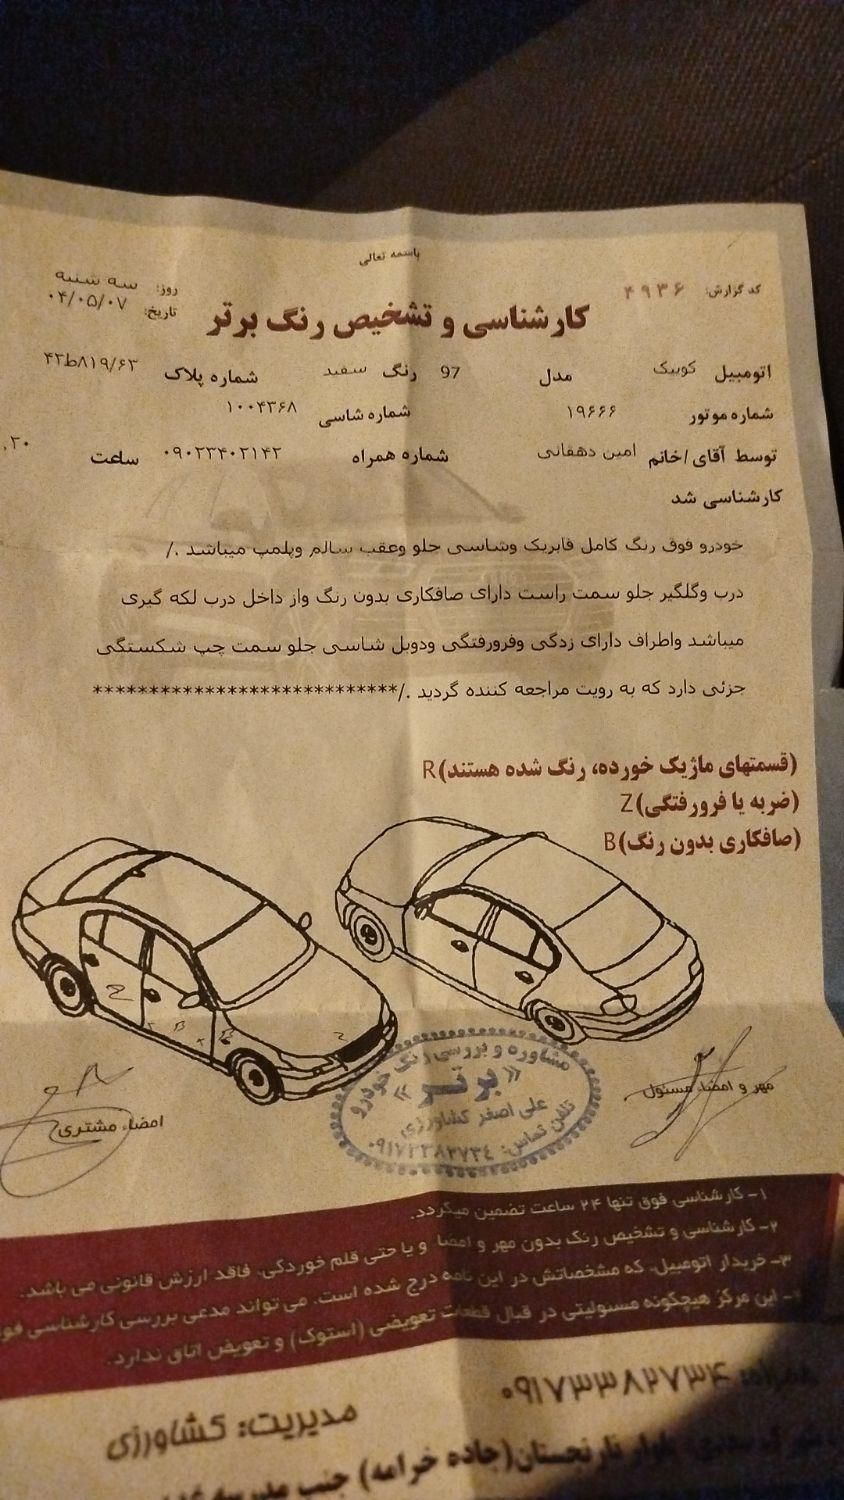 باسمه تعالی
کد گزارش: ۴۹۳۶
روز: سه شنبه
تاریخ: ۰۴/۰۵/۰۷
کارشناسی و تشخیص رنگ برتر
اتومبیل کوییک مدل 97 رنگ سفید شماره پلاک ۴۲ط۸۱۹/۶۳
شماره موتور ۱۹۶۶۶ شماره شاسی ۱۰۰۴۳۶۸
توسط آقای/خانم امین دهقانی شماره همراه ۰۹۰۲۳۴۰۲۱۴۲ ساعت
کارشناسی شد
خودرو فوق رنگ کامل فابریک وشاسی جلو وعقب سالم وپلمپ میباشد ./
درب وگلگیر جلو سمت راست دارای صافکاری بدون رنگ واز داخل درب لکه گیری
میباشد واطراف دارای زدگی وفرورفتگی ودوبل شاسی جلو سمت چپ شکستگی
جزئی دارد که به رویت مراجعه کننده گردید ./***************************
(قسمتهای ماژیک خورده، رنگ شده هستند)R
(ضربه یا فرورفتگی)Z
(صافکاری بدون رنگ)B
Z
B
Z
مهر و امضاء مسئول
امضاء مشتری
مشاوره و بررسی رنگ خودرو
« برتر »
علی اصغر کشاورزی
تلفن تماس: ۰۹۱۷۳۳۸۲۷۳۴
۱- کارشناسی فوق تنها ۲۴ ساعت تضمین میگردد.
۲- کارشناسی و تشخیص رنگ بدون مهر و امضا و یا حتی قلم خوردگی، فاقد ارزش قانونی می باشد.
۳- خریدار اتومبیل، که مشخصاتش در این نامه درج شده است. می تواند مدعی بررسی کارشناسی
این مرکز هیچگونه مسئولیتی در قبال قطعات تعویضی (استوک) و تعویض اتاق ندارد.
همراه: ۰۹۱۷۳۳۸۲۷۳۴
مدیریت: کشاورزی
بلوار نارنجستان(جاده خرامه) جنب مدرسه